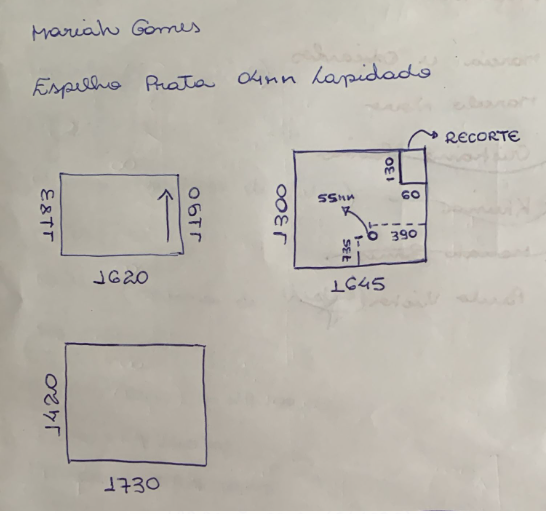 Mariah Gomes
Espelho Prata 04mm Lapidado
RECORTE
130
60
1183
1190
1300
55mm
390
735
1620
1645
1420
1730